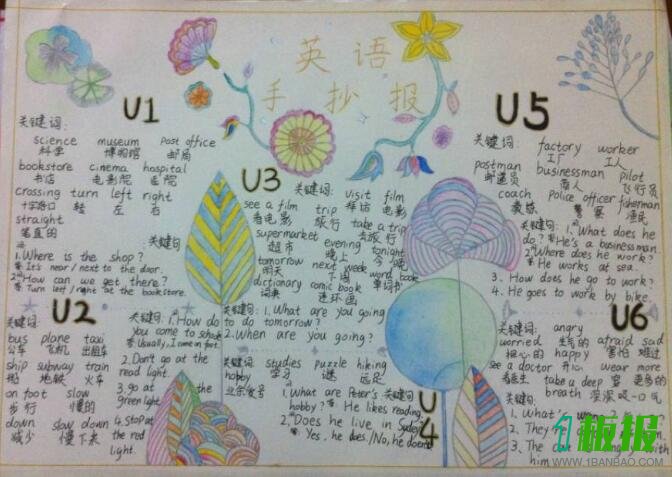 英语
手抄报
U1
关键词:
science museum post office
科学 博物馆 邮局
bookstore cinema hospital
书店 电影院 医院
crossing turn left right
十字路口 转 左 右
straight
笔直的
关键句:
1. Where is the shop?
It's near/next to the door.
2. How can we get there?
Turn left/right at the bookstore.
U2
关键词:
bus plane taxi
公车 飞机 出租车
ship subway train
船 地铁 火车
on foot slow
步行 慢的
down slow down
减少 慢下来
关键句:
1. How do
you come to school?
Usually, I come on foot.
2. Don't go at the
red light.
3. go at the
green light.
4. Stop at
the red
light.
U3
关键词: visit film
拜访 电影
see a film trip take a trip
看电影 旅行 去旅行
supermarket evening tonight
超市 晚上 今晚
tomorrow next week word book
明天 下周 单词书
dictionary comic book
词典 连环画
关键句: 1. What are you going
to do tomorrow?
2. When are you going?
U4
关键词: studies puzzle hiking
学习 谜 远足
hobby
业余爱好
关键句
1. What are Peter's
hobby? He likes reading.
2. Does he live in Sydney?
Yes, he does/No, he doesn't
U5
关键词: factory worker
工厂 工人
postman businessman pilot
邮递员 商人 飞行员
coach police officer fisherman
教练 警察 渔民
关键句: 1. What does he
do? He's a businessman
2. Where does he work?
He works at sea.
3. How does he go to work?
4. He goes to work by bike.
U6
关键词: angry
生气的
worried happy afraid sad
担心的 开心 害怕 难过
see a doctor wear more
看医生 穿更多
take a deep breath 深深吸一口气
关键句:
1. What's
2. They
3. The cat angry with
him
1板报
WWW.1BANBAO.COM